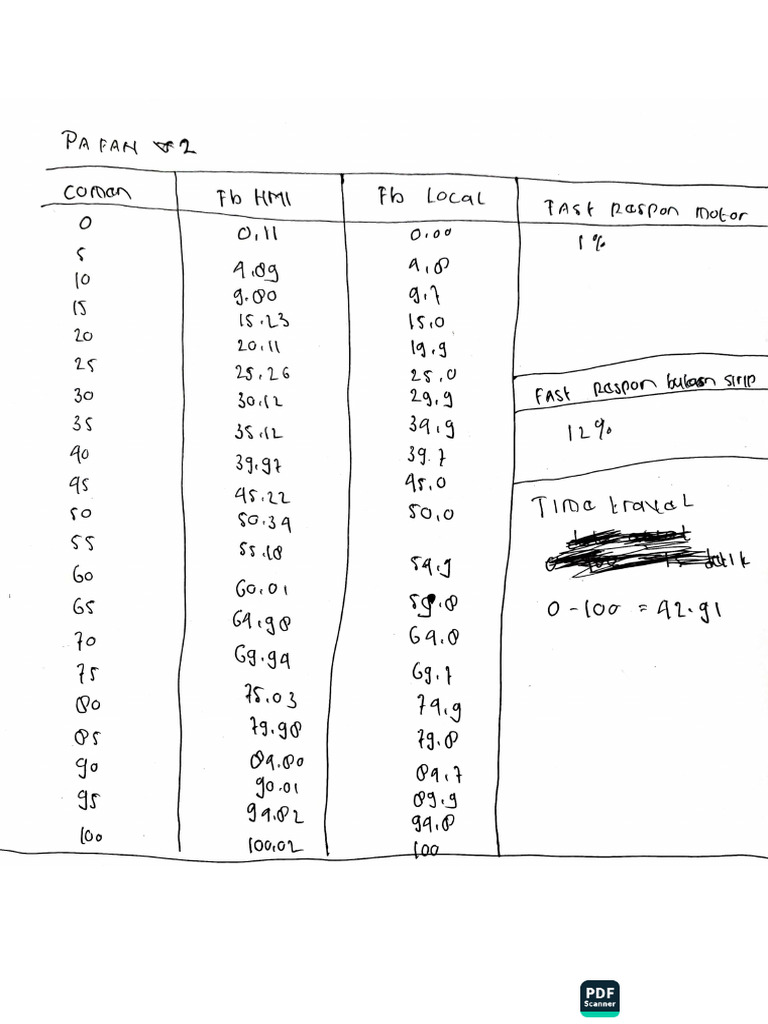 PA FAN 2
COMAN Fb HMI Fb LOCAL FAST RESPON MOTOR
0 0,11 0.00 1%
5 4.89 4.8
10 9.80 9.7
15 15.23 15.0
20 20.11 19.9
25 25.26 25.0
FAST RESPON bukaan SIRIP
30 30.12 29.9
35 35.12 34.9 12%
40 39.97 39.7
45 45.22 45.0
TIME traveL
50 50.34 50.0
55 55.18 54.9
detik
60 60.01 59.8
0-100 = 42.91
65 64.98 64.8
70 69.94 69.7
75 75.03 74.9
80 79.98 79.8
85 84.80 84.7
90 90.01 89.9
95 94.82 94.8
100 100.02 100
PDF
Scanner